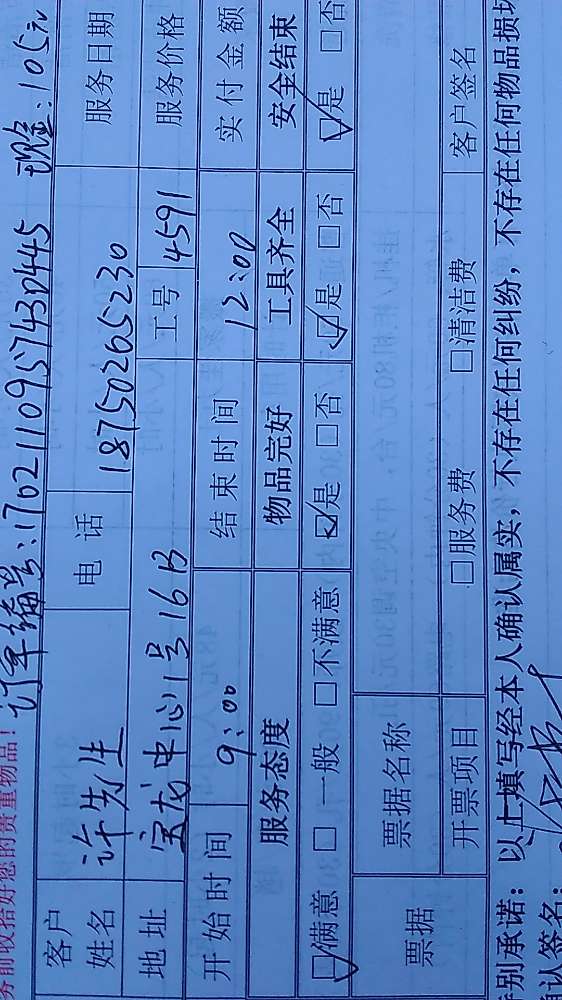 务前收拾好您的贵重物品!
订单编号:1702110957430445 现金:105元
客户姓名 许先生 电话 18750265230 服务日期
地址 宝龙中心1号16B 工号 4591 服务价格
开始时间 9:00 结束时间 12:00 实付金额
服务态度 物品完好 工具齐全 安全结束
☑满意 □一般 □不满意 ☑是 □否 ☑是 □否 ☑是 □否
票据 票据名称
开票项目 □服务费 □清洁费 客户签名
别承诺:以上填写经本人确认属实,不存在任何纠纷,不存在任何物品损坏
确认签名: